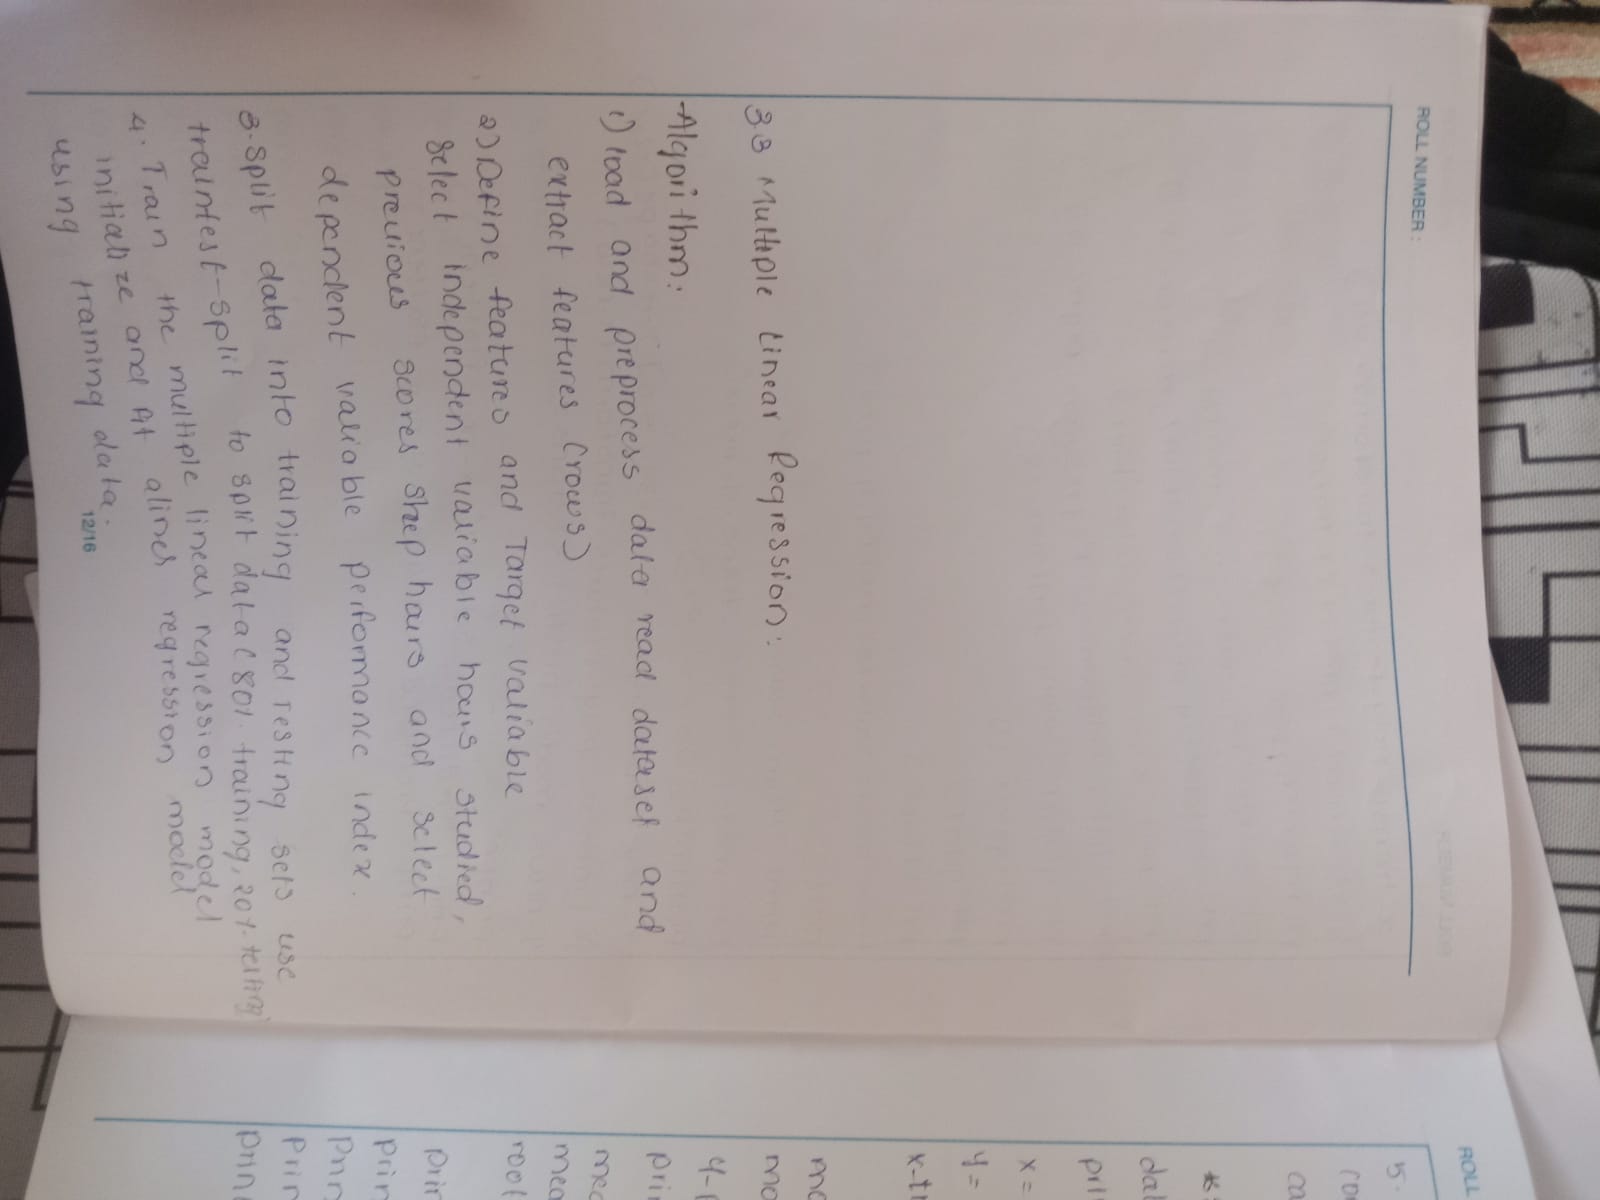 ROLL NUMBER:
3.3 Multiple Linear Regression:
Algorithm:
1) load and preprocess data read dataset and
extract features (rows)
2) Define features and Target variable
select independent variable hours studied,
previous scores sleep hours and select
dependent variable performance index.
3. split data into training and testing sets use
traintest-split to split data (80% training, 20% testing)
4. Train the multiple linear regression model
initialize and fit a liner regression model
using training data.
12/16
ROLL
5.
dat
pri
x =
y =
x-t
mo
mo
y-
pri
mea
mea
root
prin
prin
prin
prin
prin